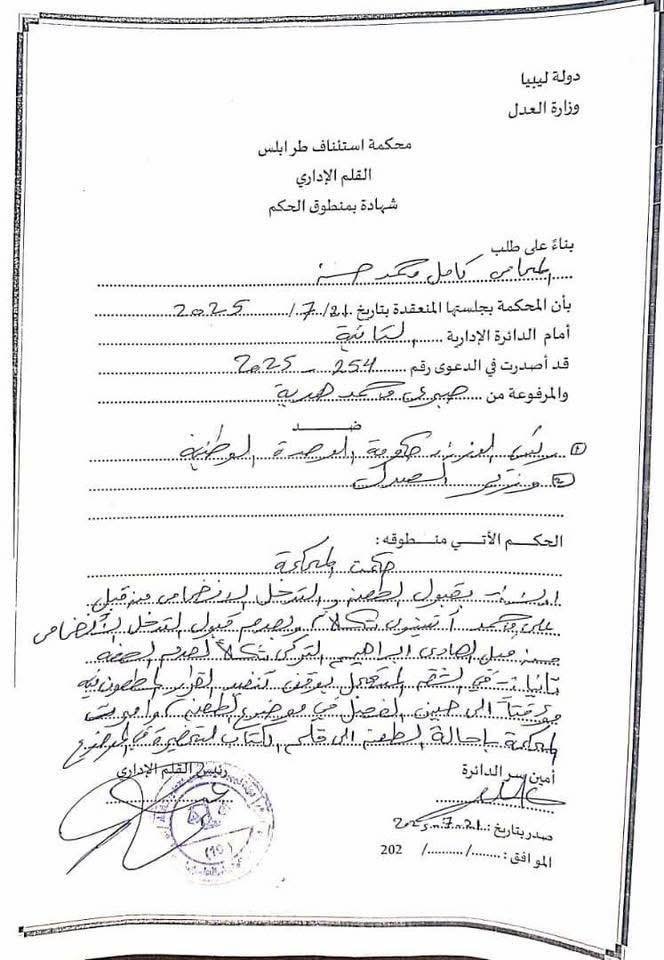 دولة ليبيا
وزارة العدل
محكمة استئناف طرابلس
القلم الإداري
شهادة بمنطوق الحكم
بناءً على طلب
المحامي كامل محمد حسنة
بأن المحكمة بجلستها المنعقدة بتاريخ 21/7/2025
أمام الدائرة الإدارية الثانية
قد أصدرت في الدعوى رقم 254 - 2025
والمرفوعة من صبري محمد هدية
ضد
1 رئيس الوزراء حكومة الوحدة الوطنية
2 وزير
الحكم الآتي منطوقه:
حكمت المحكمة
بقبول الطعن والتدخل الانضمامي من قبل
علي محمد شكلاً وبعدم قبول التدخل الانضمامي
من قبل الهادي ابراهيم التركي شكلاً لعدم الصفة
ثانياً: في الشق المستعجل بوقف تنفيذ القرار المطعون فيه
مؤقتاً الى حين الفصل في موضوع الطعن وأمرت
المحكمة باحالة الطعن الى قلم الكتاب لتحضيره في الموضوع
أمين سر الدائرة
رئيس القلم الإداري
صدر بتاريخ: 21-7-2025
الموافق: ....../....../ 202
(10)